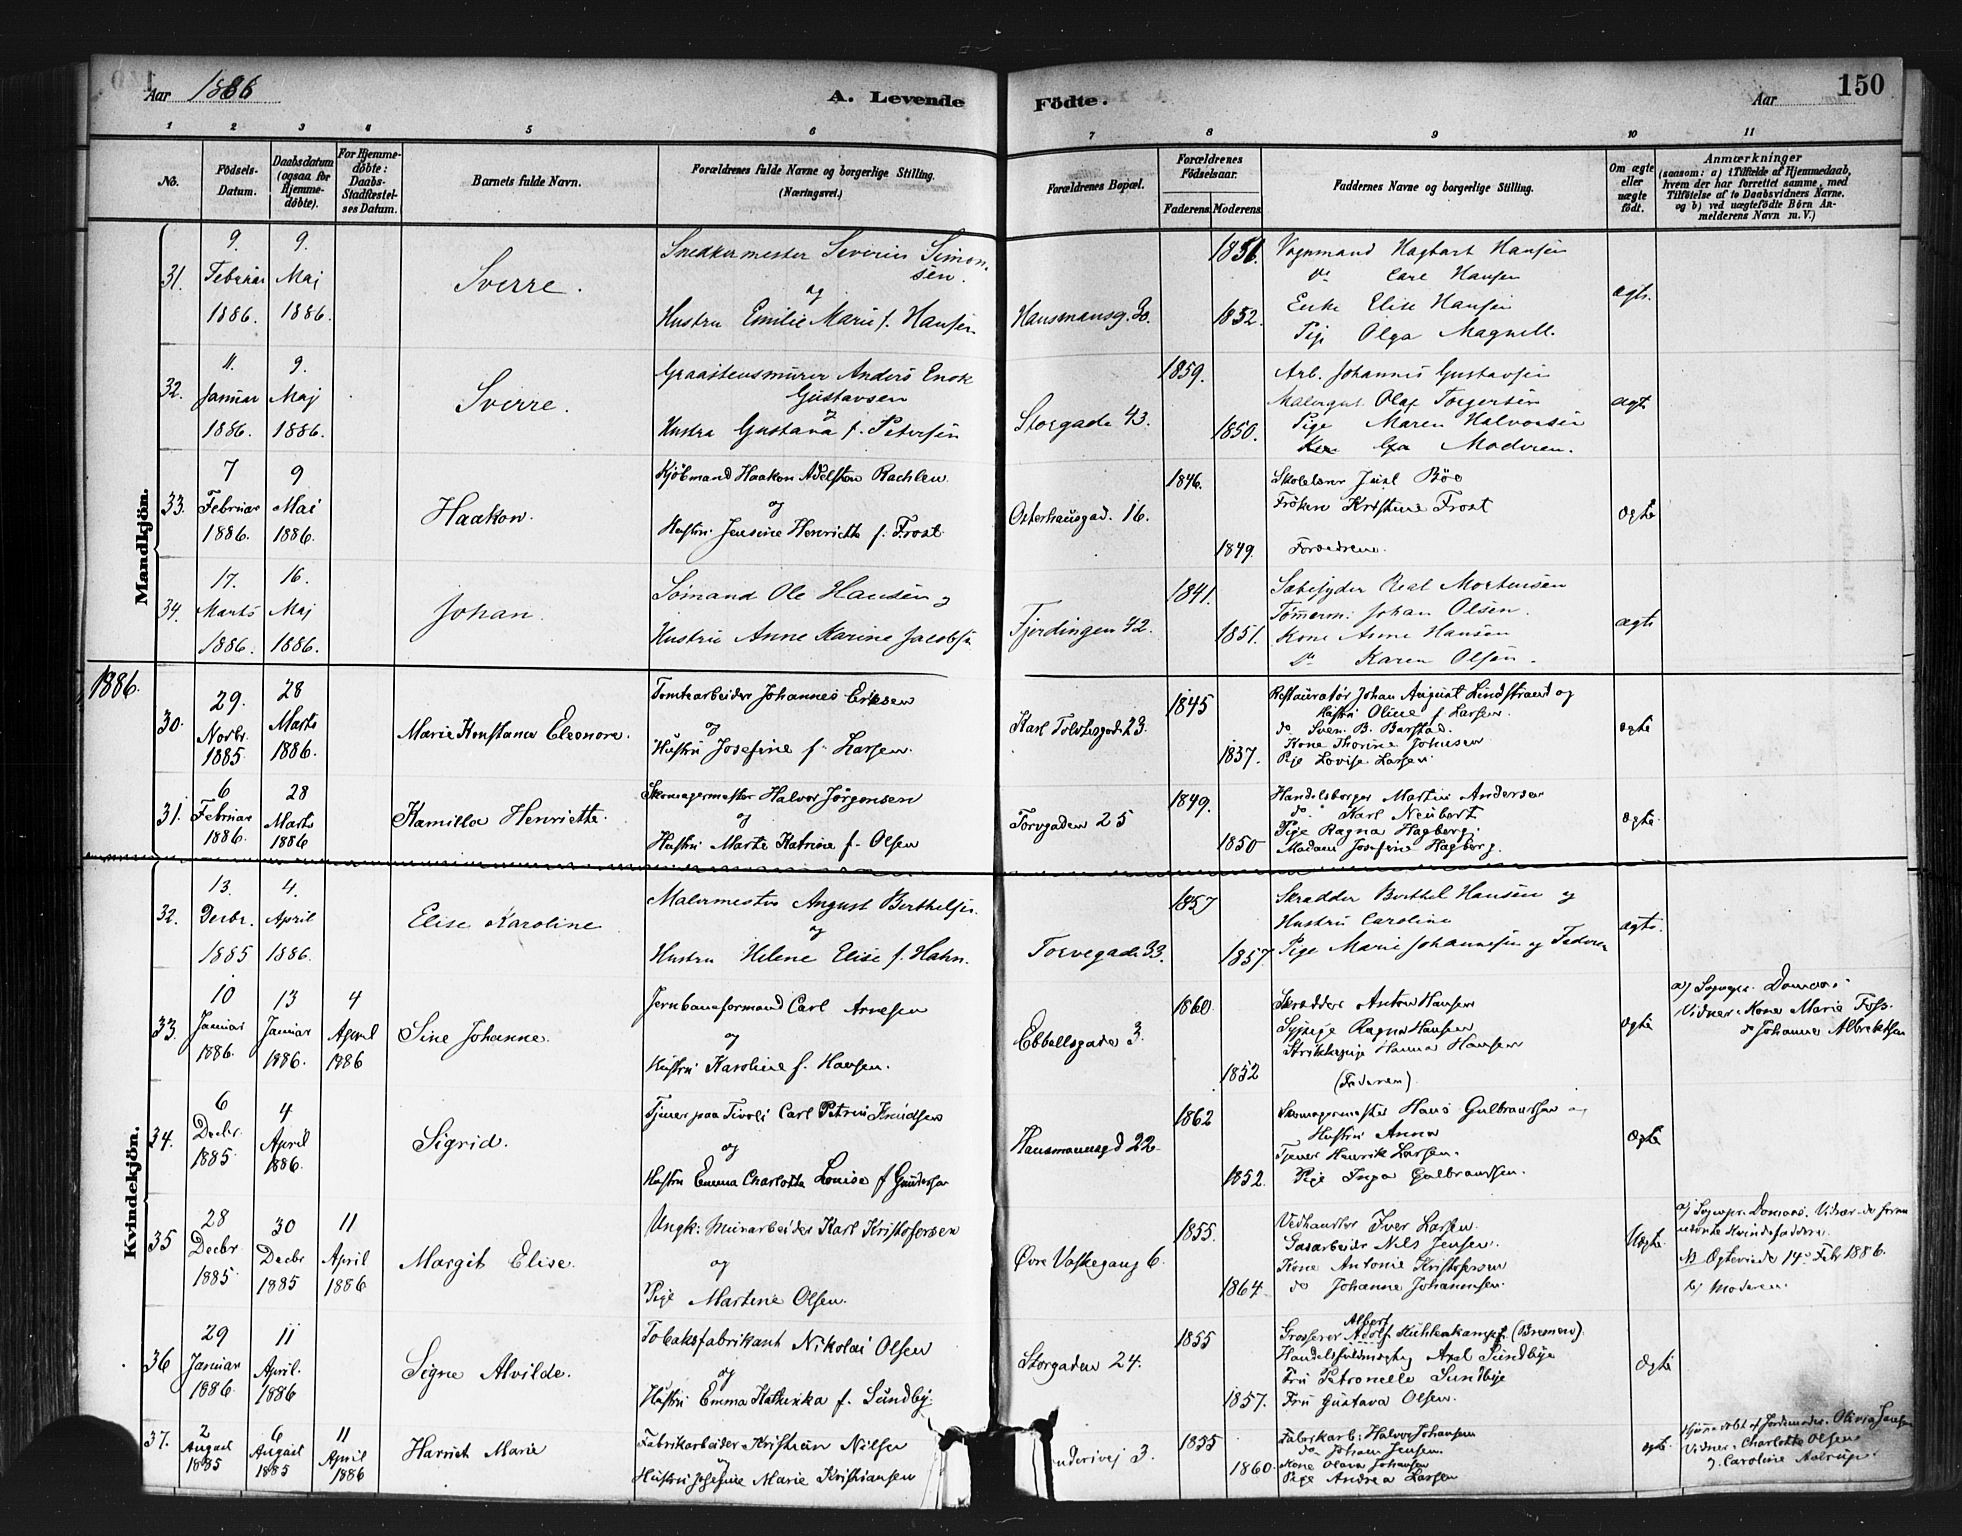 Aar 1886
A. Levende
Födte.
Aar
150
1 2 3 4 5 6 7 8 9 10 11
No.
Födsels-Datum.
Daabsdatum (ogsaa for Hjemme-döbte).
For Hjemme-döbte: Daabs-Stadfæstel-ses Datum.
Barnets fulde Navn.
Forældrenes fulde Navne og borgerlige Stilling. (Næringsvei.)
Forældrenes Bopæl.
Forældrenes Födselsaar.
Faderens Moderens
Faddernes Navne og borgerlige Stilling.
Om ægte eller uægte födt.
Anmærkninger
(saasom: a) i Tilfælde af Hjemmedaab, hvem der har forrettet samme, med Tilföielse af to Daabsvidners Navne, og b) ved uægtefödte Börn An-melderens Navn m. V.)
Mandkjön.
31. 9. Februar 1886. 9. Maj 1886.
Sverre.
Snedkermester Severin Simonsen.
og
Hustru Emilie Marie f. Hansen
Hausmansg. 30. 1851. 1852.
Vognmand Hagbart Hansen
do Carl Hansen
Enke Elise Hansen
Pige Olga Magnell.
ægte.
32. 11. Januar 1886. 9. Maj 1886.
Sverre.
Graastensmurer Anders Enok
Gustavsen
og
Hustru Gustava f. Petersen
Storgade 43. 1859. 1850.
Arb. Johannes Gustavsen
Malersv. Olaf Torgersen
Pige Maren Halvorsen
Moderen.
ægte
33. 7 Februar 1886. 9 Mai 1886.
Haakon.
Kjöbmand Haakon Adelsten Rachlew
og
Hustru Jensine Henriette f. Frost
Osterhausgad. 16. 1846. 1849.
Skolelærer Juul Böe
Fröken Kristine Frost
Forældrene.
ægte
34. 17. Marts 1886. 16. Maj 1886.
Johan.
Sömand Ole Hansen og
Hustru Anne Karine Jacobsen
Fjerdingen 42. 1841. 1851.
Sæbesyder Mortensen
Tömmerm. Johan Olsen.
Kone Anne Hansen
do Karen Olsen.
ægte
1886.
30. 29. Novbr. 1885 28 Marts 1886.
Marie Konstance Eleonore.
Tomtearbeider Johannes Eriksen
og
Hustru Josefine f. Larsen.
Karl Tolstesgade 23. 1845 1837.
Restauratør Johan August Lindstrand og
Hustru Oline f. Larsen.
do Sven B. Barstad.
Kone Thorine Johnsen
Pige Lovise Larsen.
ægte
31. 6 Februar 1886. 28 Marts 1886
Kamilla Henriette.
Skomagermester Halvor Jørgensen
og
Hustru Marte Katrine f. Olsen
Torvgaden 25 1849. 1850
Handelsborger Martin Andersen
do Karl Neubert
Pige Ragna Hagberg.
Madam Josefine Hagberg.
ægte
Kvindekjön.
32. 13. Decbr. 1885 4. April 1886.
Elise Karoline
Malermester August Berthelsen.
og
Hustru Helene Elise f. Hahn.
Torvegade 33. 1857 1857.
Skrædder Berthel Hansen og
Hustru Caroline
Pige Marie Johannesen og Faderen
ægte.
33. 10 Januar 1886. 13 Januar 1886. 4 April 1886
Sine Johanne.
Jernbaneformand Carl Arnesen
og
Hustru Karoline f. Hansen.
Ebbellsgade 3. 1860. 1852
Skrædder Anton Hansen
Sypige Ragna Hansen
Strikkepige Hanna Hansen
(Faderen).
ægte
a) Sognepr. Domaas.
Vidner: Kone Marie Foss.
do Johanne Albrektsen
34. 6 Decbr. 1885 4 April 1886.
Sigrid.
Tjener paa Tivoli Carl Petrus Knudsen
og
Hustru Emma Charlotta Louise f. Gundersen
Hausmannsgd 22. 1862 1852.
Skomagermester Hans Gulbrandsen og
Hustru Anna
Tjener Henrik Larsen.
Pige Inga Gulbrandsen.
ægte
35 28 Decbr. 1885 30 Decbr 1885 11 April 1886
Margit Elise.
Ungk: Murarbeider Karl Kristofersen
og
Pige Martine Olsen.
Övre Vaskegang 6. 1855. 1864.
Vedhandler Iver Larsen.
Gasarbeider Nils Jensen.
Kone Antonie Kristofersen
do Johanne Johannesen.
Uægte.
a) Sognepr. Domaas. Vidner de foran
nævnte Kvindefaddere.
NB Ægteviede 14de Febr 1886.
b) Moderen.
36 29 Januar 1886. 11 April. 1886
Signe Alvilde.
Tobaksfabrikant Nikolai Olsen
og
Hustru Emma Kathinka f. Sundby.
Storgaden 24. 1855 1857.
Albert
Grosserer Adolf Kuhlenkampf. (Bremen).
Handelsfuldmægtig Axel Sundbye
Fru Petronelle Sundbye
Fru Gustava Olsen.
ægte
37. 2 August 1885 6 August 1885 11 April 1886
Harriet Marie
Fabrikarbeider Kristian Nilsen
og
Hustru Josefine Marie Kristiansen
nderivej 3. 1855 1860.
Fabrikarb. Halvor Johansen
do Johan Jensen.
Kone Olava Johansen
Pige Andrea Larsen
ægte.
Hjemmedöbt af Jordemoder Olivia Jansen
Vidner: Charlotte Olsen
og Caroline Aalrup.